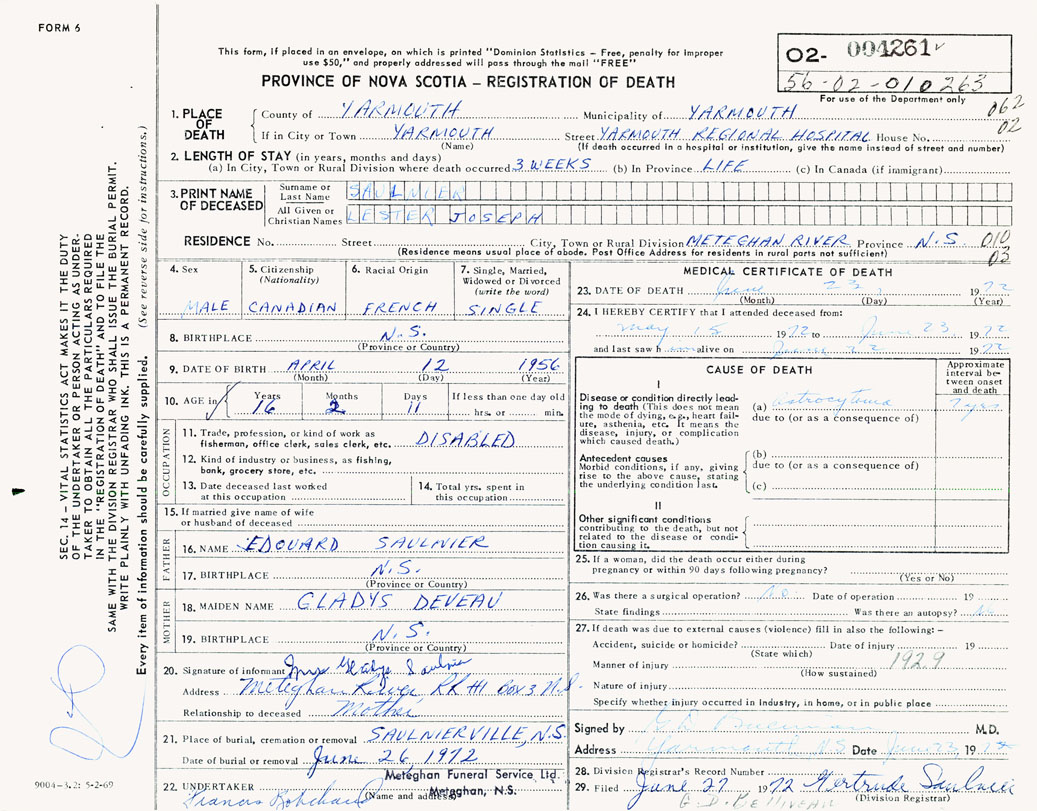 FORM 6
This form, if placed in an envelope, on which is printed "Dominion Statistics – Free, penalty for improper
use $50," and properly addressed will pass through the mail "FREE"
PROVINCE OF NOVA SCOTIA – REGISTRATION OF DEATH
02- 004261
56-02-010263
For use of the Department only
062
02
1. PLACE OF DEATH
County of YARMOUTH Municipality of YARMOUTH
If in City or Town YARMOUTH Street YARMOUTH REGIONAL HOSPITAL House No.
(Name) (If death occurred in a hospital or institution, give the name instead of street and number)
2. LENGTH OF STAY (in years, months and days)
(a) In City, Town or Rural Division where death occurred 3 WEEKS (b) In Province LIFE (c) In Canada (if immigrant)
3. PRINT NAME OF DECEASED
Surname or Last Name SAULNIER
All Given or Christian Names LESTER JOSEPH
RESIDENCE No. Street City, Town or Rural Division METEGHAN RIVER Province N.S 010
03
(Residence means usual place of abode. Post Office Address for residents in rural parts not sufficient)
4. Sex
MALE
5. Citizenship
(Nationality)
CANADIAN
6. Racial Origin
FRENCH
7. Single, Married,
Widowed or Divorced
(write the word)
SINGLE
8. BIRTHPLACE N.S.
(Province or Country)
9. DATE OF BIRTH APRIL 12 1956
(Month) (Day) (Year)
10. AGE in Years Months Days If less than one day old
16 2 11 hrs. or min.
OCCUPATION
11. Trade, profession, or kind of work as
fisherman, office clerk, sales clerk, etc. DISABLED
12. Kind of industry or business, as fishing,
bank, grocery store, etc.
13. Date deceased last worked
at this occupation
14. Total yrs. spent in
this occupation
15. If married give name of wife
or husband of deceased
FATHER
16. NAME EDOUARD SAULNIER
17. BIRTHPLACE N.S.
(Province or Country)
MOTHER
18. MAIDEN NAME GLADYS DEVEAU
19. BIRTHPLACE N.S.
(Province or Country)
20. Signature of informant Mrs Gladys Saulnier
Address Meteghan River RR #1 Box 3 N.S.
Relationship to deceased Mother
21. Place of burial, cremation or removal SAULNIERVILLE, N.S.
Date of burial or removal June 26 1972
22. UNDERTAKER Meteghan Funeral Service Ltd.
(Name and address) Meteghan, N.S.
Francis Robichaud
MEDICAL CERTIFICATE OF DEATH
23. DATE OF DEATH June 23 1972
(Month) (Day) (Year)
24. I HEREBY CERTIFY that I attended deceased from:
May 15 1972 to June 23, 1972
and last saw h alive on June 22 1972
CAUSE OF DEATH
Approximate
interval be-
tween onset
and death
I
Disease or condition directly lead-
ing to death (This does not mean
the mode of dying, e.g., heart fail-
ure, asthenia, etc. It means the
disease, injury, or complication
which caused death.)
(a) astrocytoma
due to (or as a consequence of)
Antecedent causes
Morbid conditions, if any, giving
rise to the above cause, stating
the underlying condition last.
(b)
due to (or as a consequence of)
(c)
II
Other significant conditions
contributing to the death, but not
related to the disease or condi-
tion causing it.
25. If a woman, did the death occur either during
pregnancy or within 90 days following pregnancy?
(Yes or No)
26. Was there a surgical operation? no Date of operation 19
State findings Was there an autopsy? No
27. If death was due to external causes (violence) fill in also the following: –
Accident, suicide or homicide? Date of injury 19
(State which)
Manner of injury 1929
(How sustained)
Nature of injury
Specify whether injury occurred in industry, in home, or in public place
Signed by M.D.
Address Yarmouth N.S Date June 23 1972
28. Division Registrar's Record Number
29. Filed June 27 1972 Gertrude Saulnier
(Division Registrar)
SEC. 14 – VITAL STATISTICS ACT MAKES IT THE DUTY
OF THE UNDERTAKER OR PERSON ACTING AS UNDER-
TAKER TO OBTAIN ALL THE PARTICULARS REQUIRED
IN THE "REGISTRATION OF DEATH" AND TO FILE THE
SAME WITH THE DIVISION REGISTRAR WHO SHALL ISSUE THE BURIAL PERMIT.
WRITE PLAINLY WITH UNFADING INK. THIS IS A PERMANENT RECORD.
Every item of information should be carefully supplied. (See reverse side for instructions.)
9004-3.2: 5-2-69